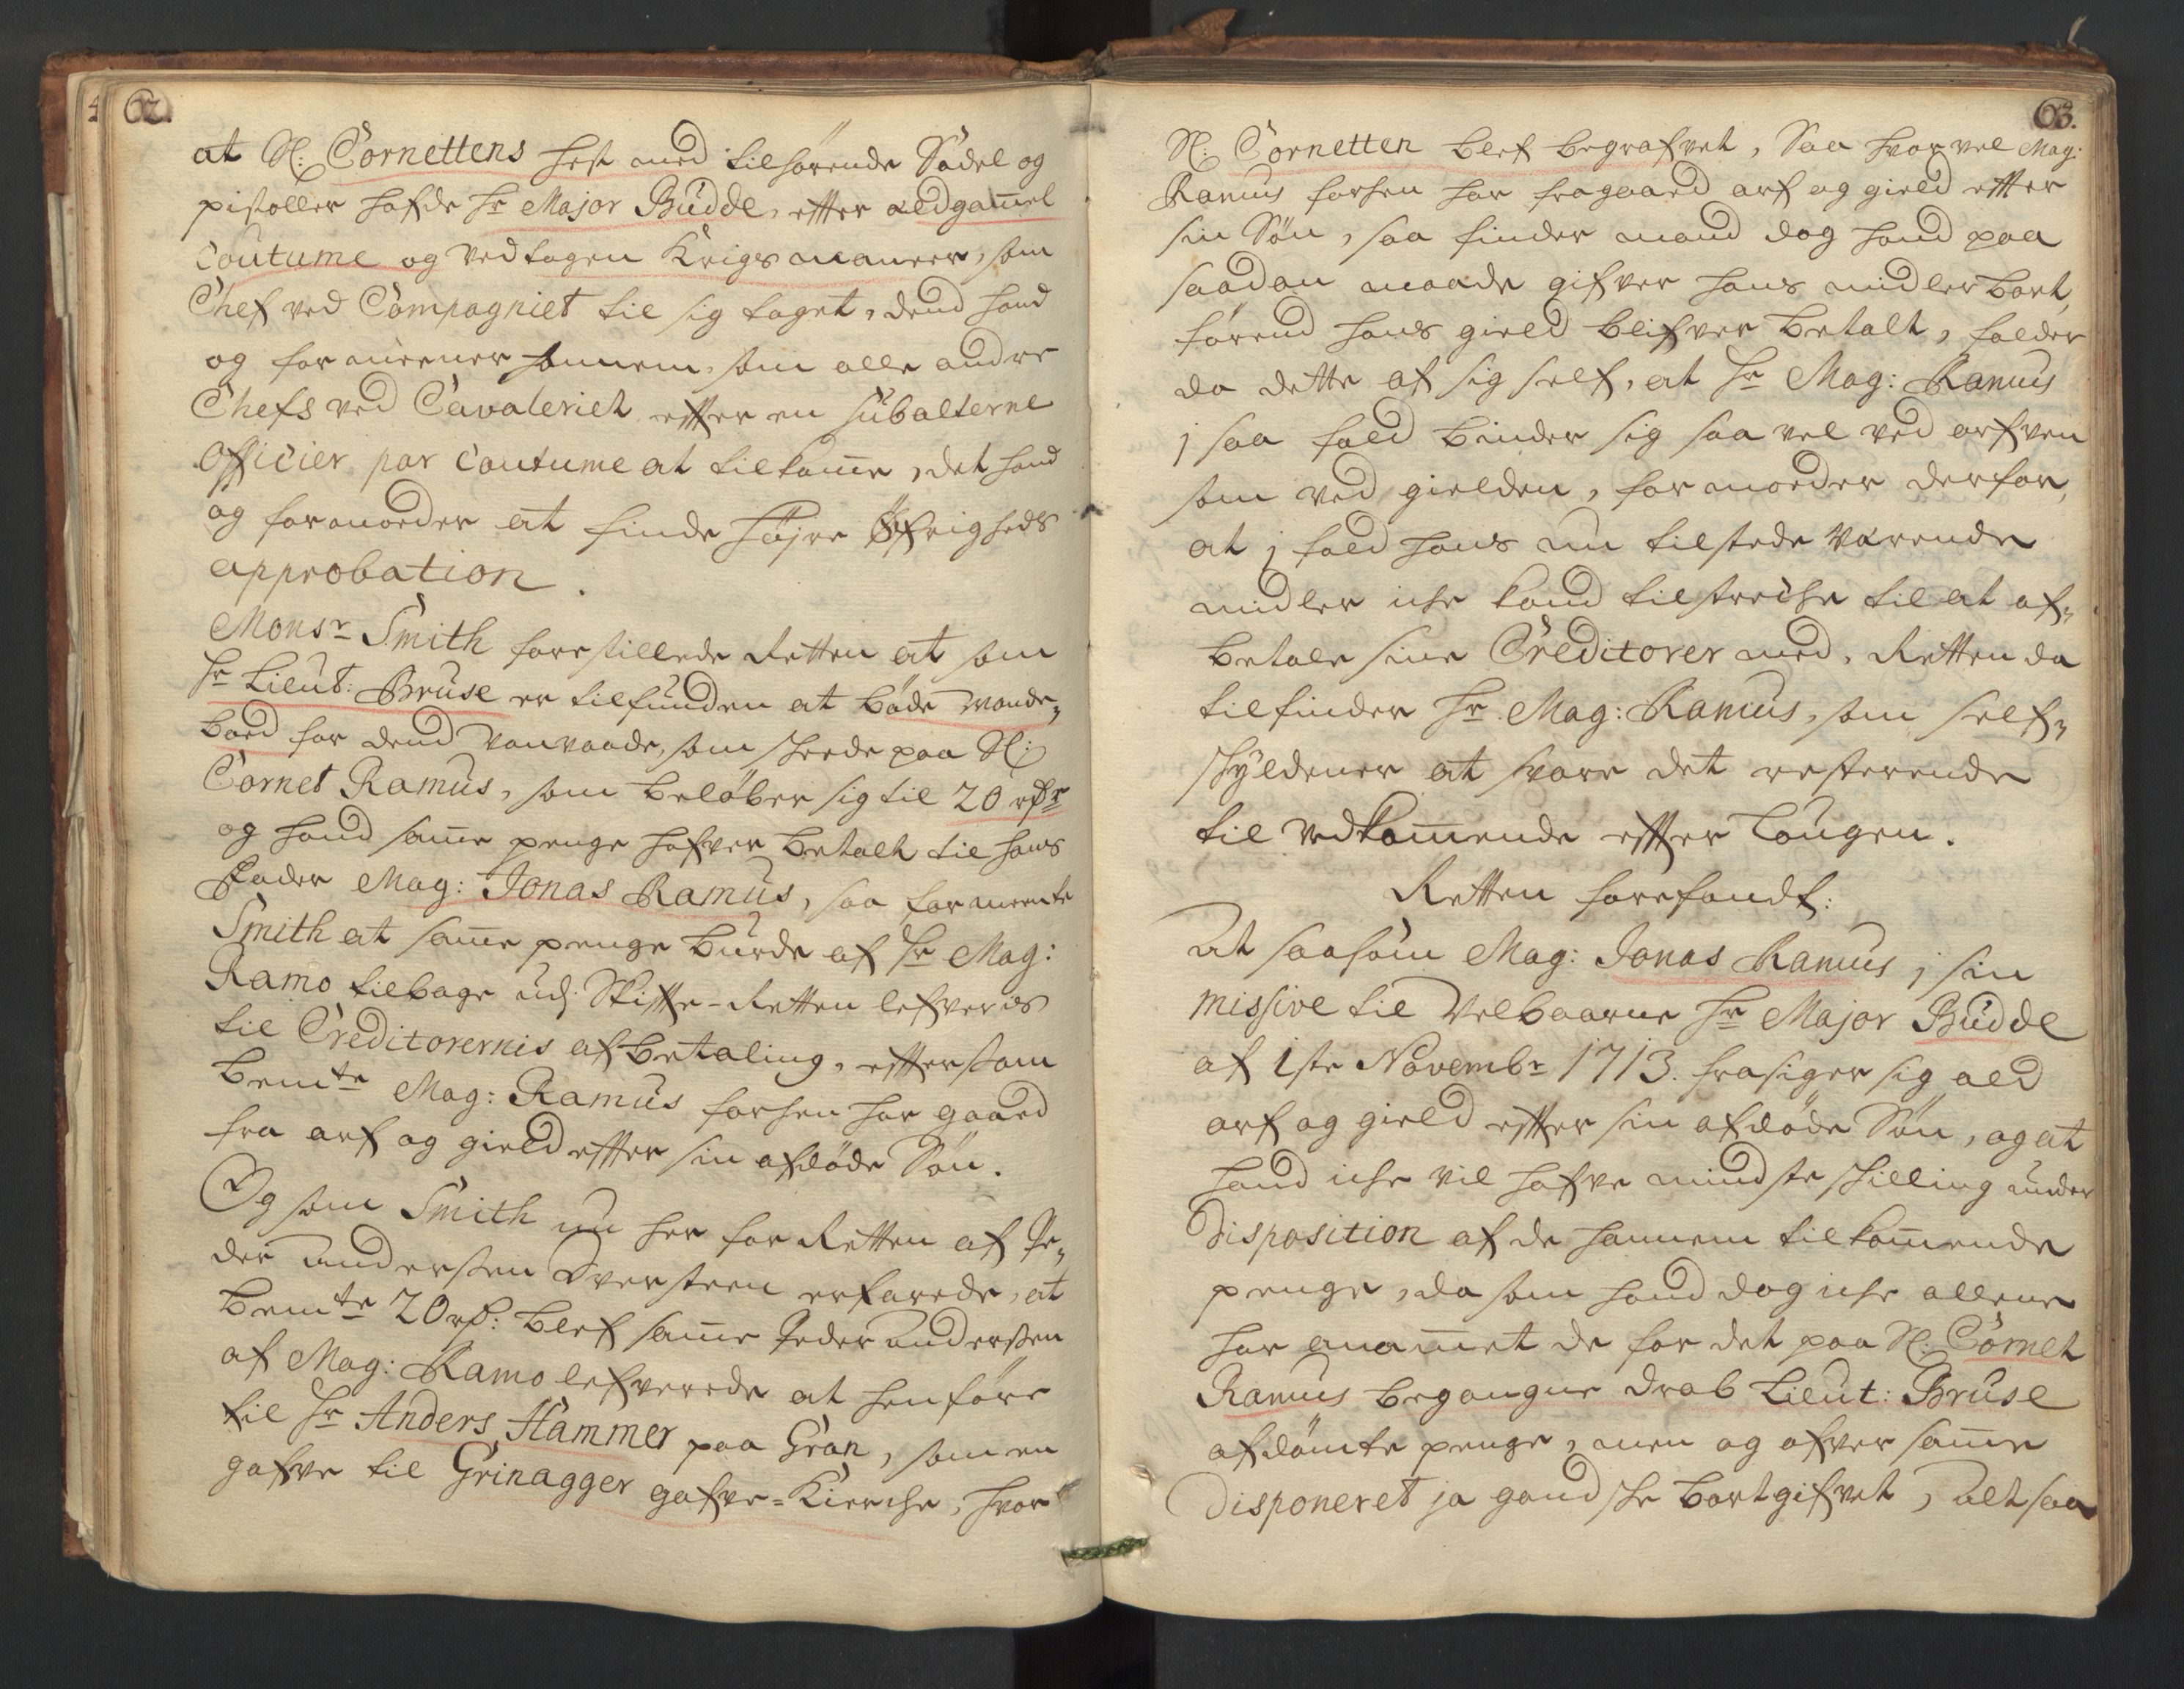 62.
at Sl: Cornettens hest med tilhørende Sadel og
pistoller hafde Hr Major Budde, efter ældgam̅el
Coutume og vedtagen Krigs maneer, som
Chef ved Compagniet til sig taget, dend hand
og formeener hannem, som alle andre
Chefs ved Cavaleriet efter en subalterne
Officier par Coutume at tilkom̅e, det hand
og formoeder at finde høyre Øfrigheds
approbation.
Monsr Smith forestillede Retten at som
Hr Lieut: Bruse er tilfunden at bøde
boed for dend vaavaade, som skeede paa Sl:
Cornet Ramus, som beløber sig til 20 rdr
og hand sam̅e penge hafver betalt til hans
Fader Mag: Jonas Ramus, saa formeente
Smith at sam̅e penge burde af Hr Mag:
Ramo tilbage udj Skifte-Retten lefveris
til Creditorernis afbetaling, eftersom
bemte Mag: Ramus forhen har gaaed
fra arf og gield efter sin afdøde Søn.
Og som Smith nu her for Retten af Pe„
der Andersen Oversteen erfarede, at
bemte 20 rd: blef sam̅e Peder Andersen
af Mag: Ramo lefverede at henføre
til Hr Anders Hammer paa Gran, som en
gafve til Grinagger gafve=Kierche, hvor
63.
Sl: Cornetten blef begrafvet, Saa hvor vel Mag:
Ramus forhen har fragaaed arf og gield efter
sin Søn, saa finder mand dog hand paa
saadan maade gifver hans midler bort,
førend hans gield blifver betalt, falder
da dette af sig self, at Hr Mag: Ramus
j saa fald binder sig saa vel ved arfven
som ved gielden, formoeder derfor,
at j fald hans nu tilstede værende
midler iche kand tilstreche til at af„
betale sine Creditorer med, Retten da
tilfinder Hr Mag: Ramus, som self„
skyldener at svare det resterende
til vedkom̅ende efter Lougen.
Retten forefandt:
At saasom Mag: Jonas Ramus j sin
missive til Velbaarne Hr Major Budde
af 1ste Novembr 1713. frasiger sig ald
arf og gield efter sin afdøde Søn, og at
hand iche vil hafve mindste skilling under
Disposition af de hannem tilkom̅ende
penge, da som hand dog iche allene
har anam̅et de for det paa Sl: Cornet
Ramus begangne drab Lieut: Bruse
afdømte penge, men og ofver sam̅e
Disponeret ja gandske bortgifvet, Altsaa